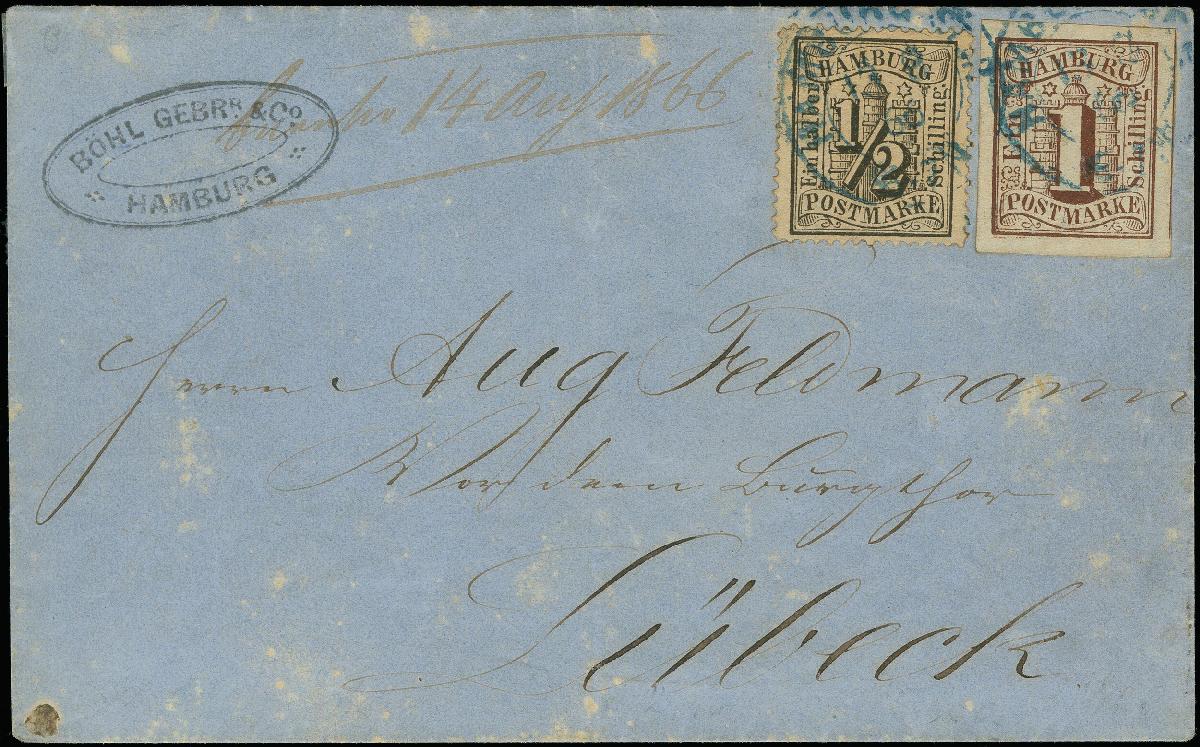 BÖHL GEBRR & Co
HAMBURG
14 Aug 1866
HAMBURG
Ein halber
1/2
Schilling
POSTMARKE
HAMBURG
Ein
1
Schilling
POSTMARKE
Herrn Aug Feldmann
Vor dem Burgthor
Lübeck